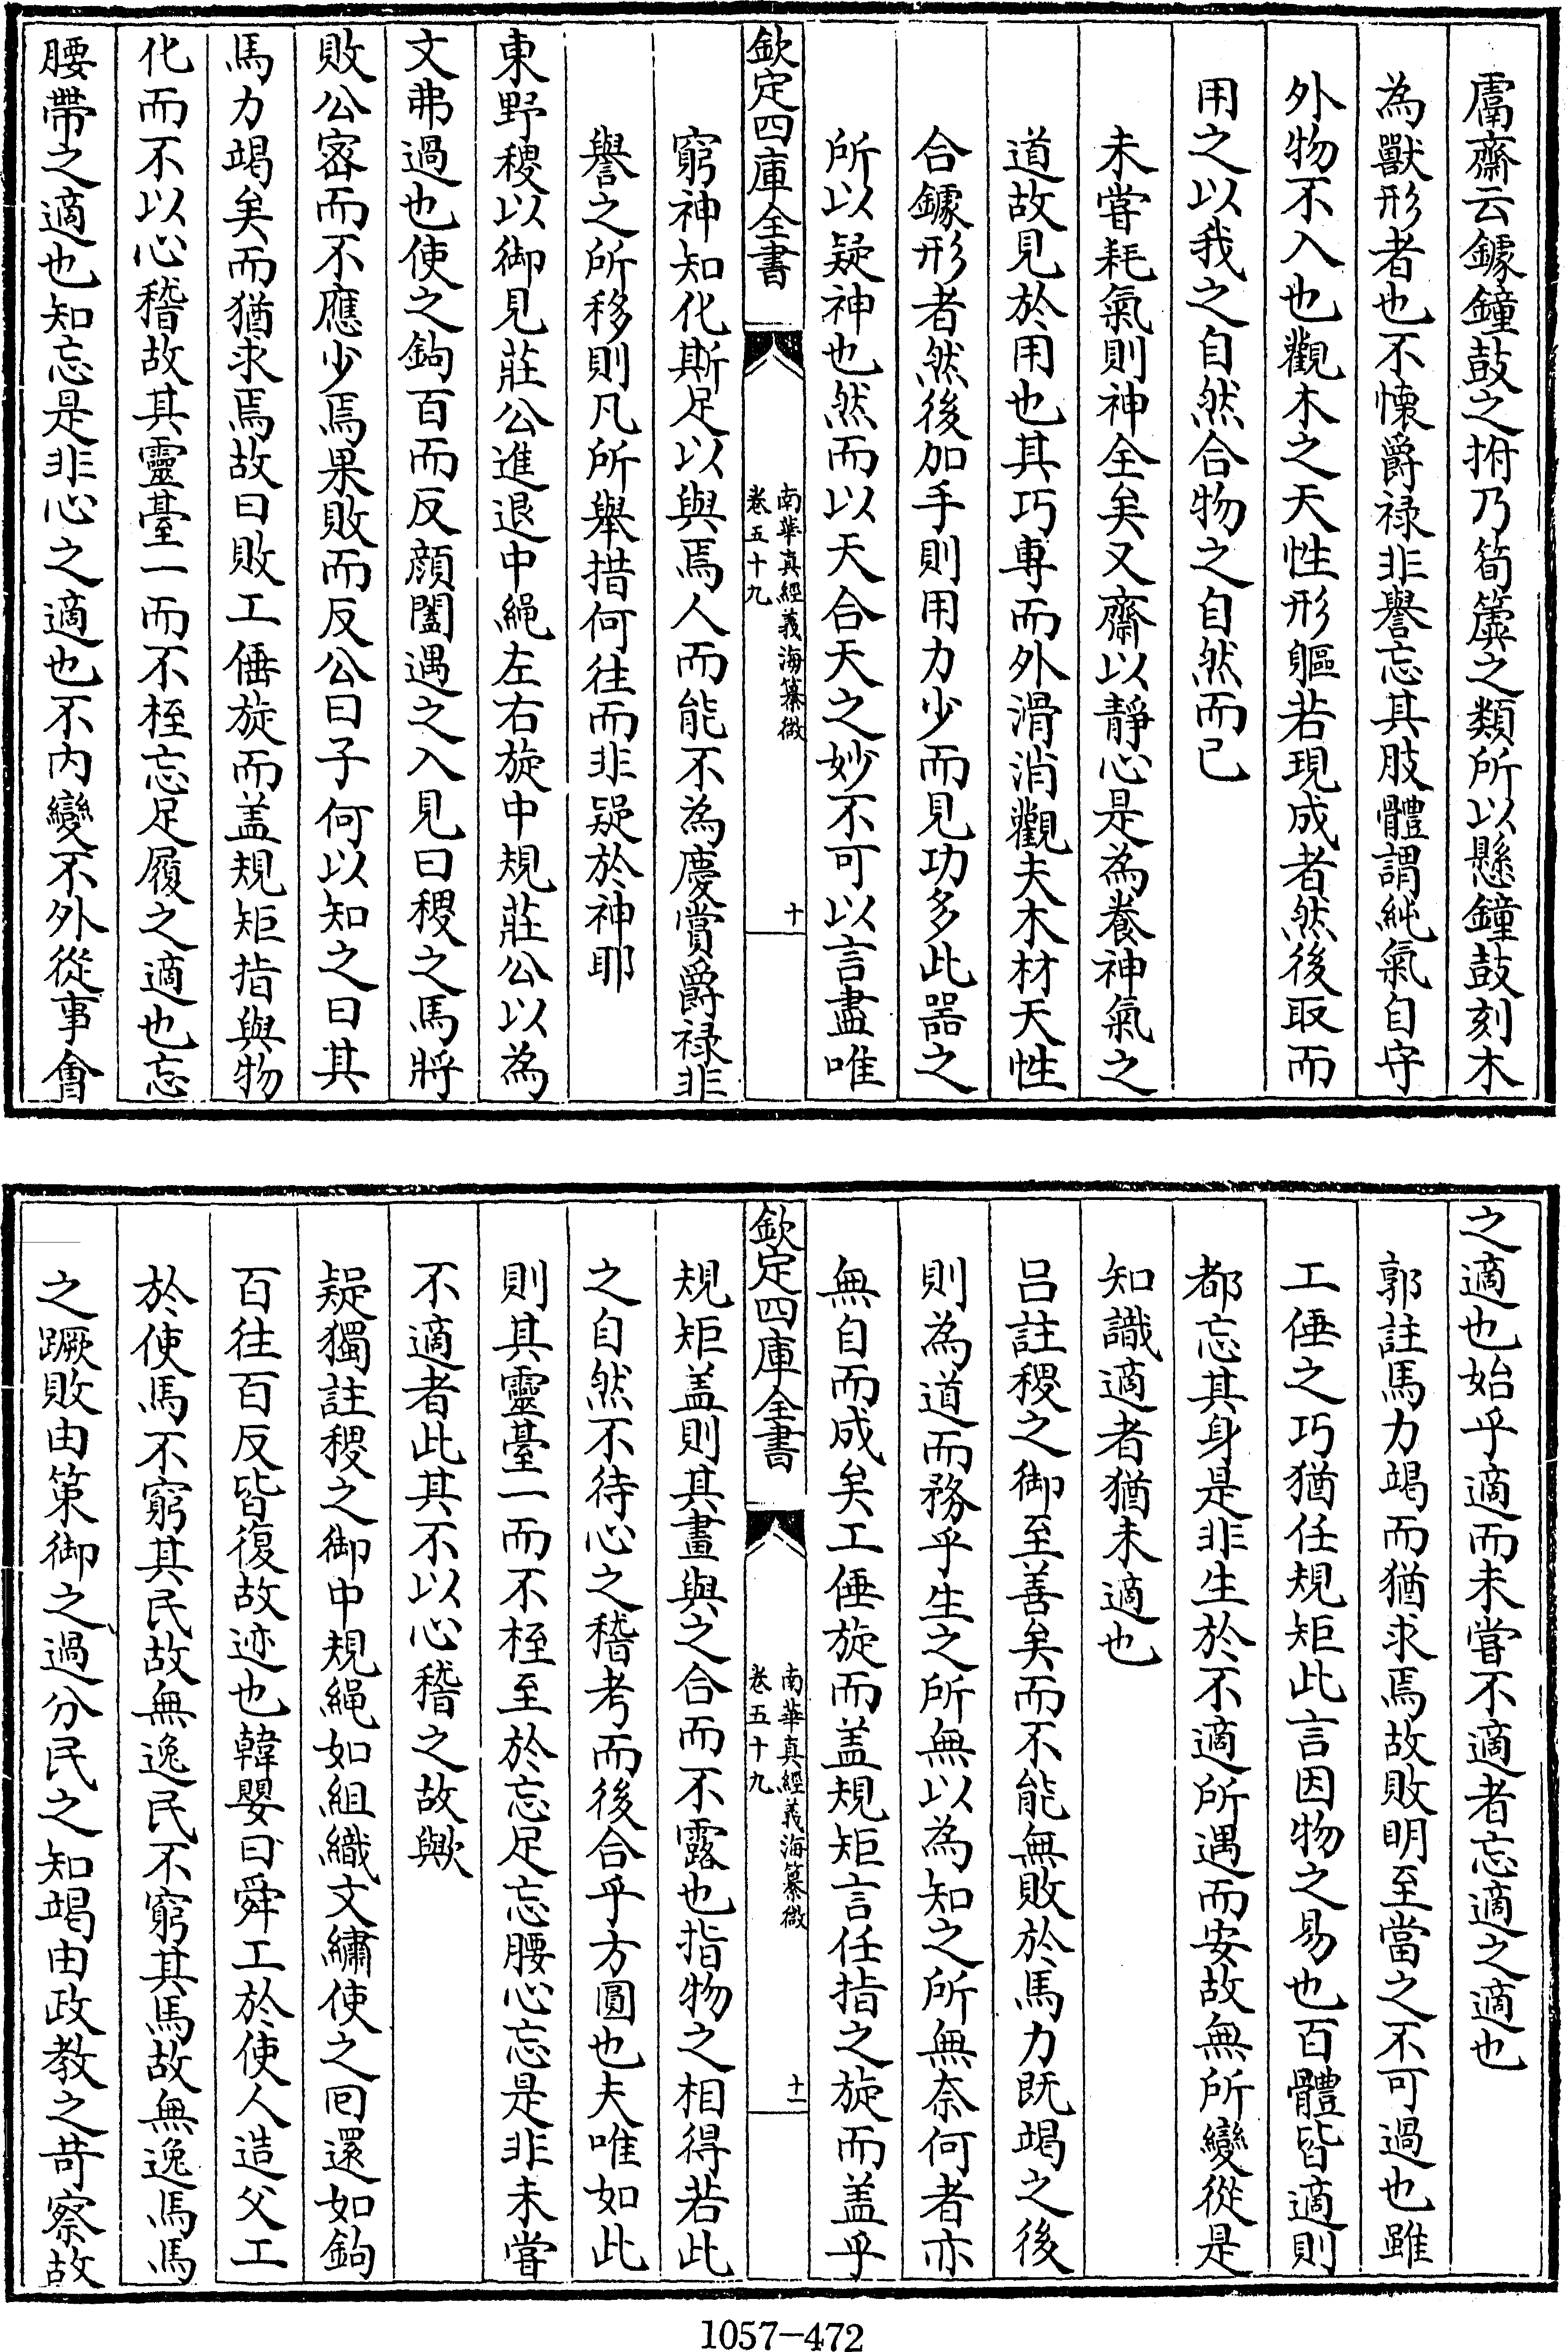 鬳齋云鐻鐘鼓之拊乃筍簴之類所以懸鐘鼓刻木
為獸形者也不懐爵禄非譽忘其肢體謂純氣自守
外物不入也觀木之天性形軀若現成者然後取而
用之以我之自然合物之自然而已
未嘗耗氣則神全矣又齋以靜心是為養神氣之
道故見於用也其巧専而外滑消觀夫木材天性
合鐻形者然後加手則用力少而見功多此器之
所以疑神也然而以天合天之妙不可以言盡唯
欽定四庫全書
南華真經義海纂微
卷五十九
十
窮神知化斯足以與焉人而能不為慶賞爵禄非
譽之所移則凡所舉措何往而非疑於神耶
東野稷以御見莊公進退中繩左右旋中規莊公以為
文弗過也使之鉤百而反顔闔遇之入見曰稷之馬將
敗公宻而不應少焉果敗而反公曰子何以知之曰其
馬力竭矣而猶求焉故曰敗工倕旋而盖規矩指與物
化而不以心稽故其靈臺一而不桎忘足履之適也忘
腰帶之適也知忘是非心之適也不内變不外從事會
之適也始乎適而未嘗不適者忘適之適也
郭註馬力竭而猶求焉故敗明至當之不可過也雖
工倕之巧猶任規矩此言因物之易也百體皆適則
都忘其身是非生於不適所遇而安故無所變從是
知識適者猶未適也
吕註稷之御至善矣而不能無敗於馬力既竭之後
則為道而務乎生之所無以為知之所無奈何者亦
無自而成矣工倕旋而盖規矩言任指之旋而盖乎
欽定四庫全書
南華真經義海纂微
卷五十九
十一
規矩盖則其畫與之合而不露也指物之相得若此
之自然不待心之稽考而後合乎方圓也夫唯如此
則其靈臺一而不桎至於忘足忘腰心忘是非未嘗
不適者此其不以心稽之故歟
疑獨註稷之御中規繩如組織文繡使之囘還如鉤
百往百反皆復故迹也韓嬰曰舜工於使人造父工
於使馬不窮其民故無逸民不窮其馬故無逸馬馬
之蹶敗由策御之過分民之知竭由政教之苛察故
1057-472